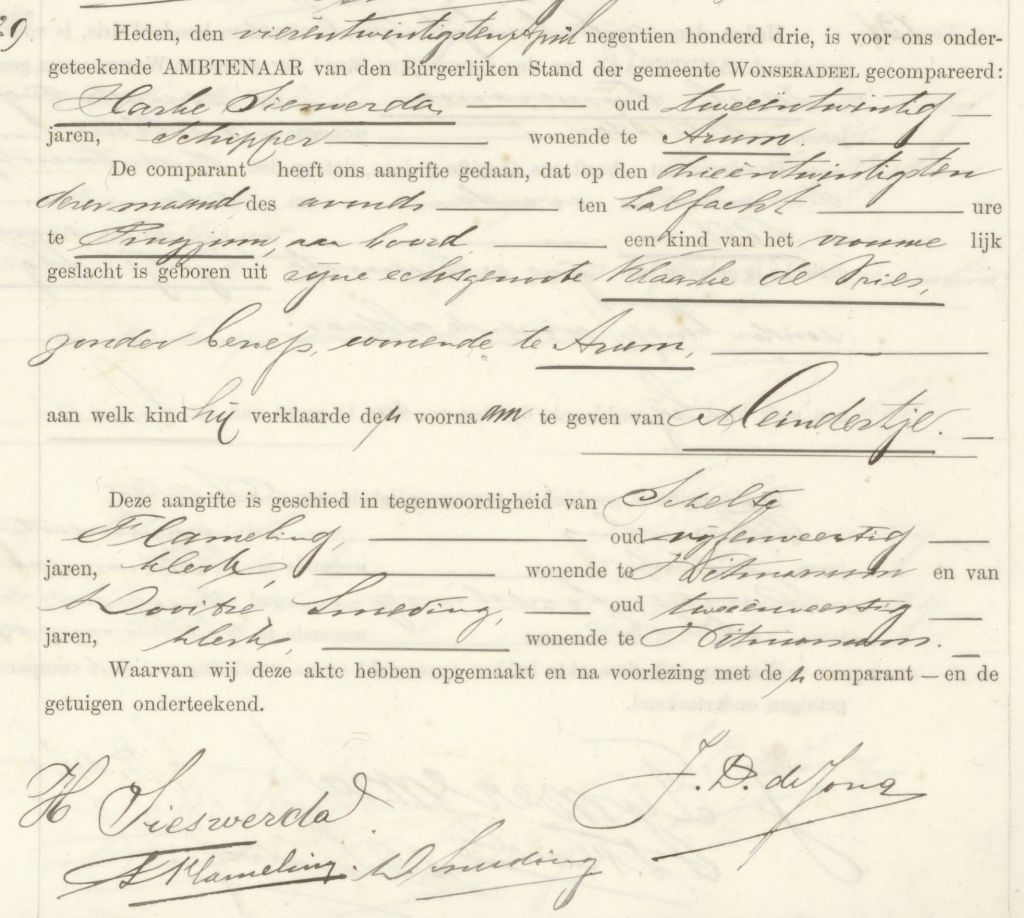 29.
Heden, den vierentwintigsten April negentien honderd drie, is voor ons onder-
geteekende AMBTENAAR van den Burgerlijken Stand der gemeente WONSERADEEL gecompareerd:
Harke Sieswerda oud tweeëntwintig
jaren, Schipper wonende te Arum.
De comparant heeft ons aangifte gedaan, dat op den drieëntwintigsten
dezer maand, des avonds ten halfacht ure
te Pingjum, aan boord, een kind van het vrouwe lijk
geslacht is geboren uit zijne echtgenoote Klaaske de Vries,
zonder beroep, wonende te Arum,
aan welk kind hij verklaarde den voornaam te geven van Meindertje.
Deze aangifte is geschied in tegenwoordigheid van Schelte
Flameling, oud vijfenveertig
jaren, klerk, wonende te Witmarsum en van
Wopke Smeding, oud tweeenveertig
jaren, klerk, wonende te Witmarsum.
Waarvan wij deze akte hebben opgemaakt en na voorlezing met den comparant – en de
getuigen onderteekend.
H Sieswerda
J. D. de Jong
S Flameling. W Smeding